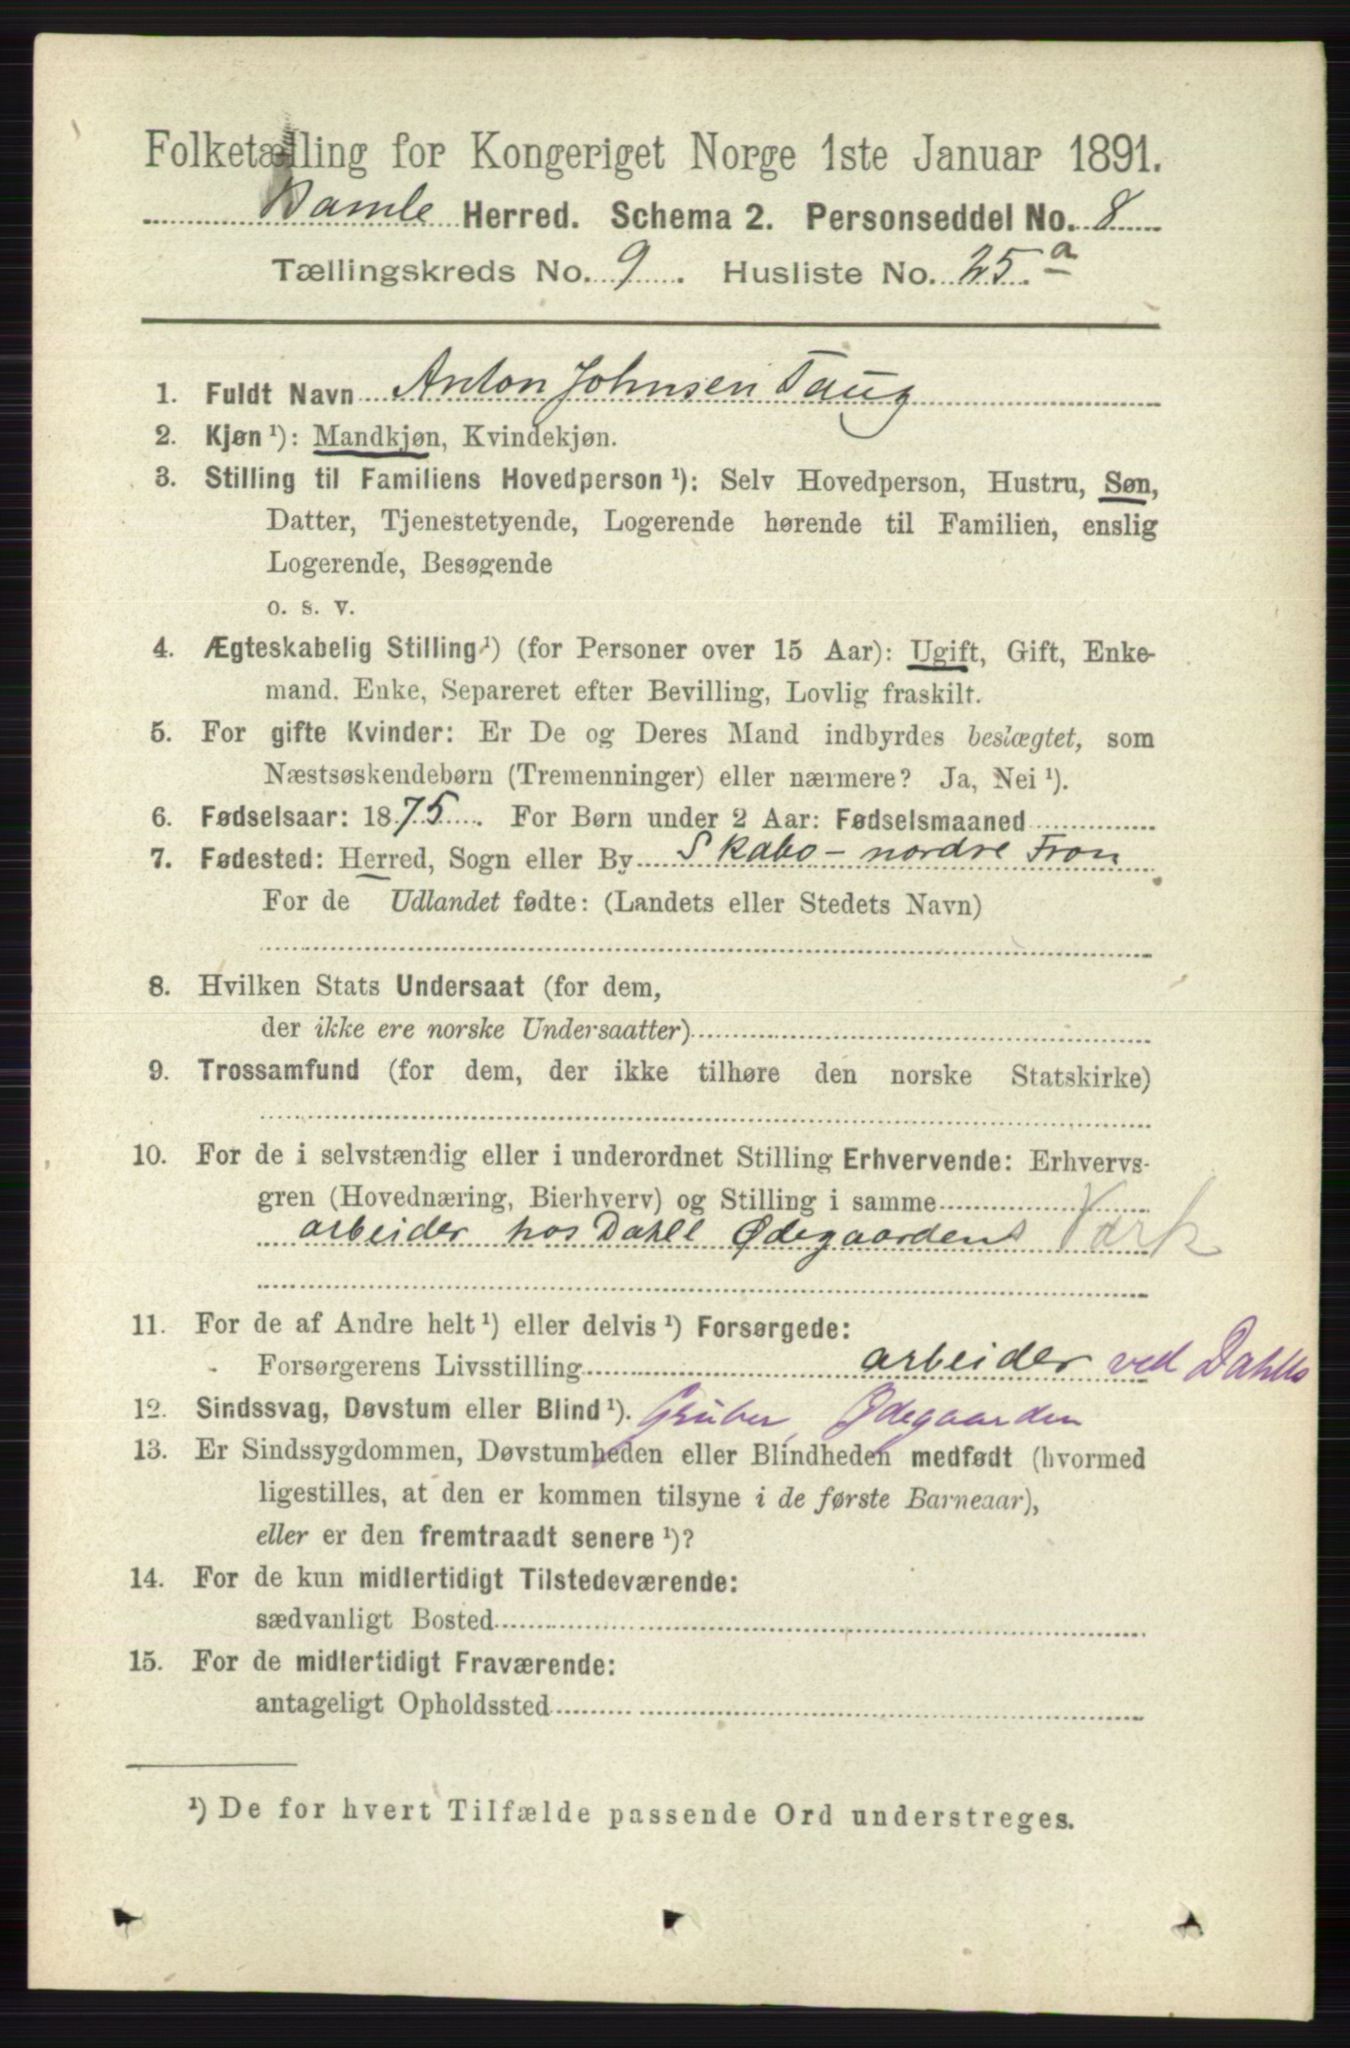 Folketælling for Kongeriget Norge 1ste Januar 1891.
Bamle Herred. Schema 2. Personseddel No. 8
Tællingskreds No. 9. Husliste No. 25.a
1. Fuldt Navn Anton Johnsen Taug
2. Kjøn ¹): Mandkjøn, Kvindekjøn.
3. Stilling til Familiens Hovedperson ¹): Selv Hovedperson, Hustru, Søn,
Datter, Tjenestetyende, Logerende hørende til Familien, enslig
Logerende, Besøgende
o. s. v.
4. Ægteskabelig Stilling ¹) (for Personer over 15 Aar): Ugift, Gift, Enke-
mand. Enke, Separeret efter Bevilling, Lovlig fraskilt.
5. For gifte Kvinder: Er De og Deres Mand indbyrdes beslægtet, som
Næstsøskendebørn (Tremenninger) eller nærmere? Ja, Nei ¹).
6. Fødselsaar: 1875. For Børn under 2 Aar: Fødselsmaaned
7. Fødested: Herred, Sogn eller By Skabo - nordre Fron
For de Udlandet fødte: (Landets eller Stedets Navn)
8. Hvilken Stats Undersaat (for dem,
der ikke ere norske Undersaatter)
9. Trossamfund (for dem, der ikke tilhøre den norske Statskirke)
10. For de i selvstændig eller i underordnet Stilling Erhvervende: Erhvervs-
gren (Hovednæring, Bierhverv) og Stilling i samme
arbeider hos Dahll Ødegaardens Værk
11. For de af Andre helt ¹) eller delvis ¹) Forsørgede:
Forsørgerens Livsstilling arbeider ved Dahlls
12. Sindssvag, Døvstum eller Blind ¹). Gruber, Ødegaarden
13. Er Sindssygdommen, Døvstumheden eller Blindheden medfødt (hvormed
ligestilles, at den er kommen tilsyne i de første Barneaar),
eller er den fremtraadt senere ¹)?
14. For de kun midlertidigt Tilstedeværende:
sædvanligt Bosted
15. For de midlertidigt Fraværende:
antageligt Opholdssted
¹) De for hvert Tilfælde passende Ord understreges.